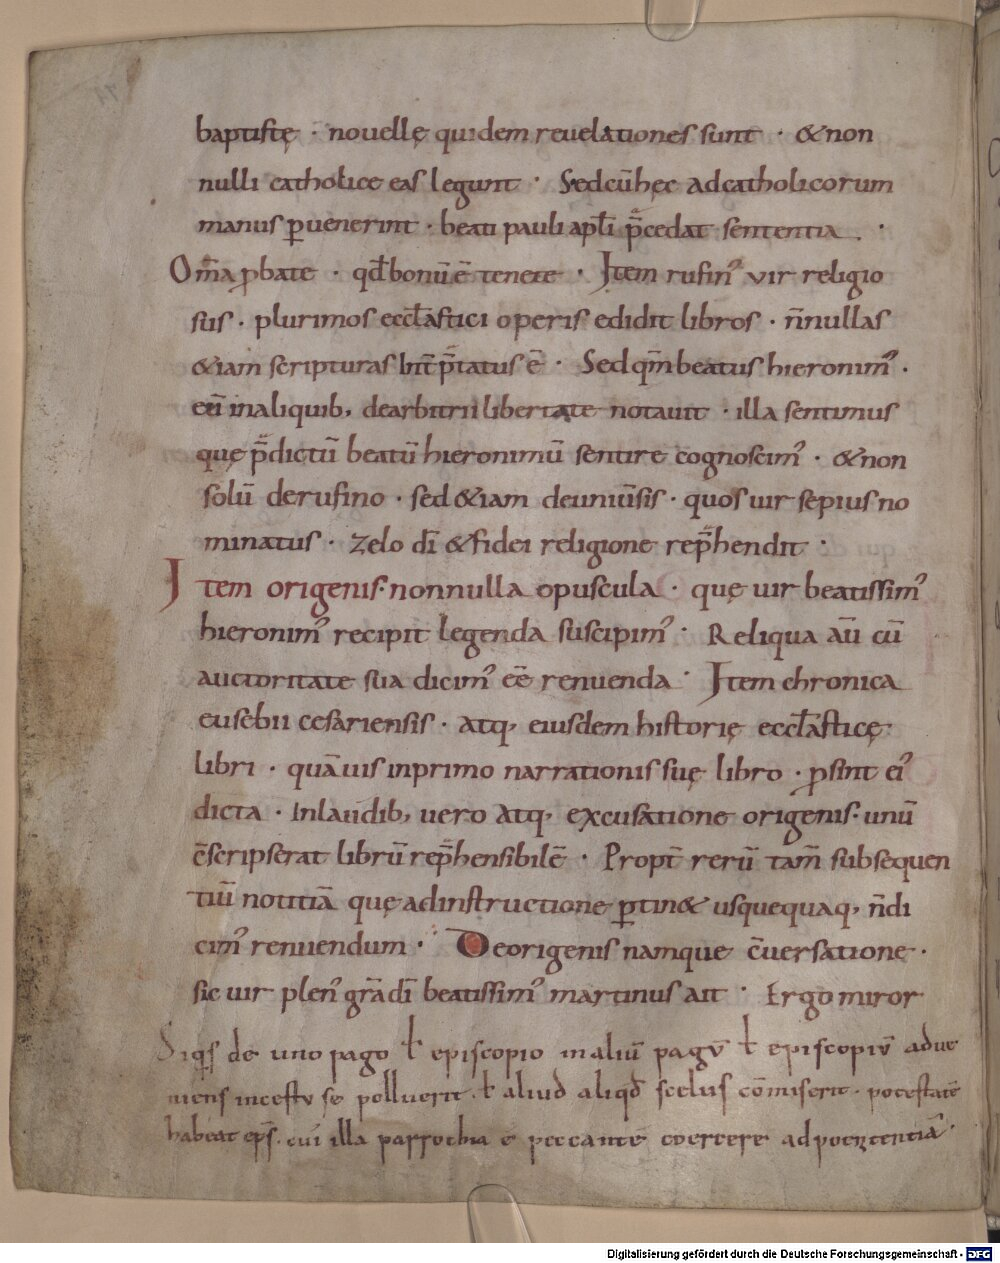 baptistę · nouellę quidem reuelationes sunt · &non
nulli catholice eas legunt · Sedcū hęc adcatholicorum
manus ꝑuenerint · beati pauli apl̄i p̄cedat sententia ·
Om̄a ꝓbate · qd̄ bonū ē tenete · Item rufin᾽ vir religio
sus · plurimos eccl̄astici operis edidit libros · n̄nullas
&iam scripturas int̄p̄tatus ē · Sed qm̄ beatus hieronim᾽ ·
eū inaliquib, dearbitrii libertate notauit · illa sentimus
quę p̄dictū beatū hieronimū sentire cognoscim᾽ · &non
solū derufino · sed &iam deuniūsis · quos uir sepius no
minatus · zelo dī &fidei religione rep̄hendit ·
Item origenis · nonnulla opuscula · quę uir beatissim᾽
hieronim᾽ recipit legenda suscipim᾽ · Reliqua aū cū
auctoritate sua dicim᾽ eē renuenda · Item chronica
eusebii cesariensis · atq, eiusdem historię eccl̄asticę
libri · quāuis inprimo narrationis suę libro · ꝓsint ei᾽
dicta · Inlaudib, uero atq, excusatione origenis · unū
c̄scripserat librū rep̄hensibilē · Propt̄ rerū tam̄ subsequen
tiū notitiā quę adinstructione ꝑtin& usquequaq, n̄di
cim᾽ renuendum · Deorigenis namque c̄uersatione ·
sic uir plen᾽ gr̄a dī beatissim᾽ martinus ait · Ergo miror
Siqs̄ de uno pago ł episcopio inaliū pagū ł episcopiū adue
niens incestu se polluerit · ł aliud aliqd̄ scelus cōmiserit · potestatē
habeat ep̄s · cui᾽ illa parrochia ē peccantē coercere adpoenitentiā ·
Digitalisierung gefördert durch die Deutsche Forschungsgemeinschaft - DFG